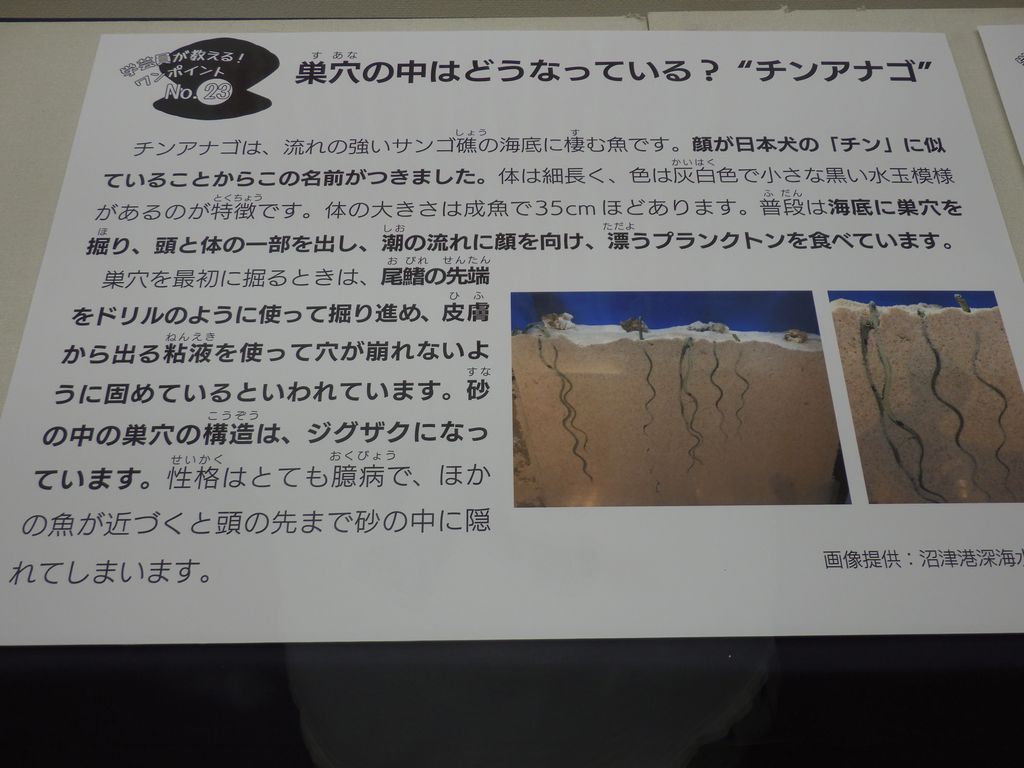 学芸員が教える！
ワンポイント
No.23
巣穴の中はどうなっている？“チンアナゴ”
チンアナゴは、流れの強いサンゴ礁の海底に棲む魚です。顔が日本犬の「チン」に似
ていることからこの名前がつきました。体は細長く、色は灰白色で小さな黒い水玉模様
があるのが特徴です。体の大きさは成魚で35cmほどあります。普段は海底に巣穴を
掘り、頭と体の一部を出し、潮の流れに顔を向け、漂うプランクトンを食べています。
巣穴を最初に掘るときは、尾鰭の先端
をドリルのように使って掘り進め、皮膚
から出る粘液を使って穴が崩れないよ
うに固めているといわれています。砂
の中の巣穴の構造は、ジグザクになっ
ています。性格はとても臆病で、ほか
の魚が近づくと頭の先まで砂の中に隠
れてしまいます。
画像提供：沼津港深海水